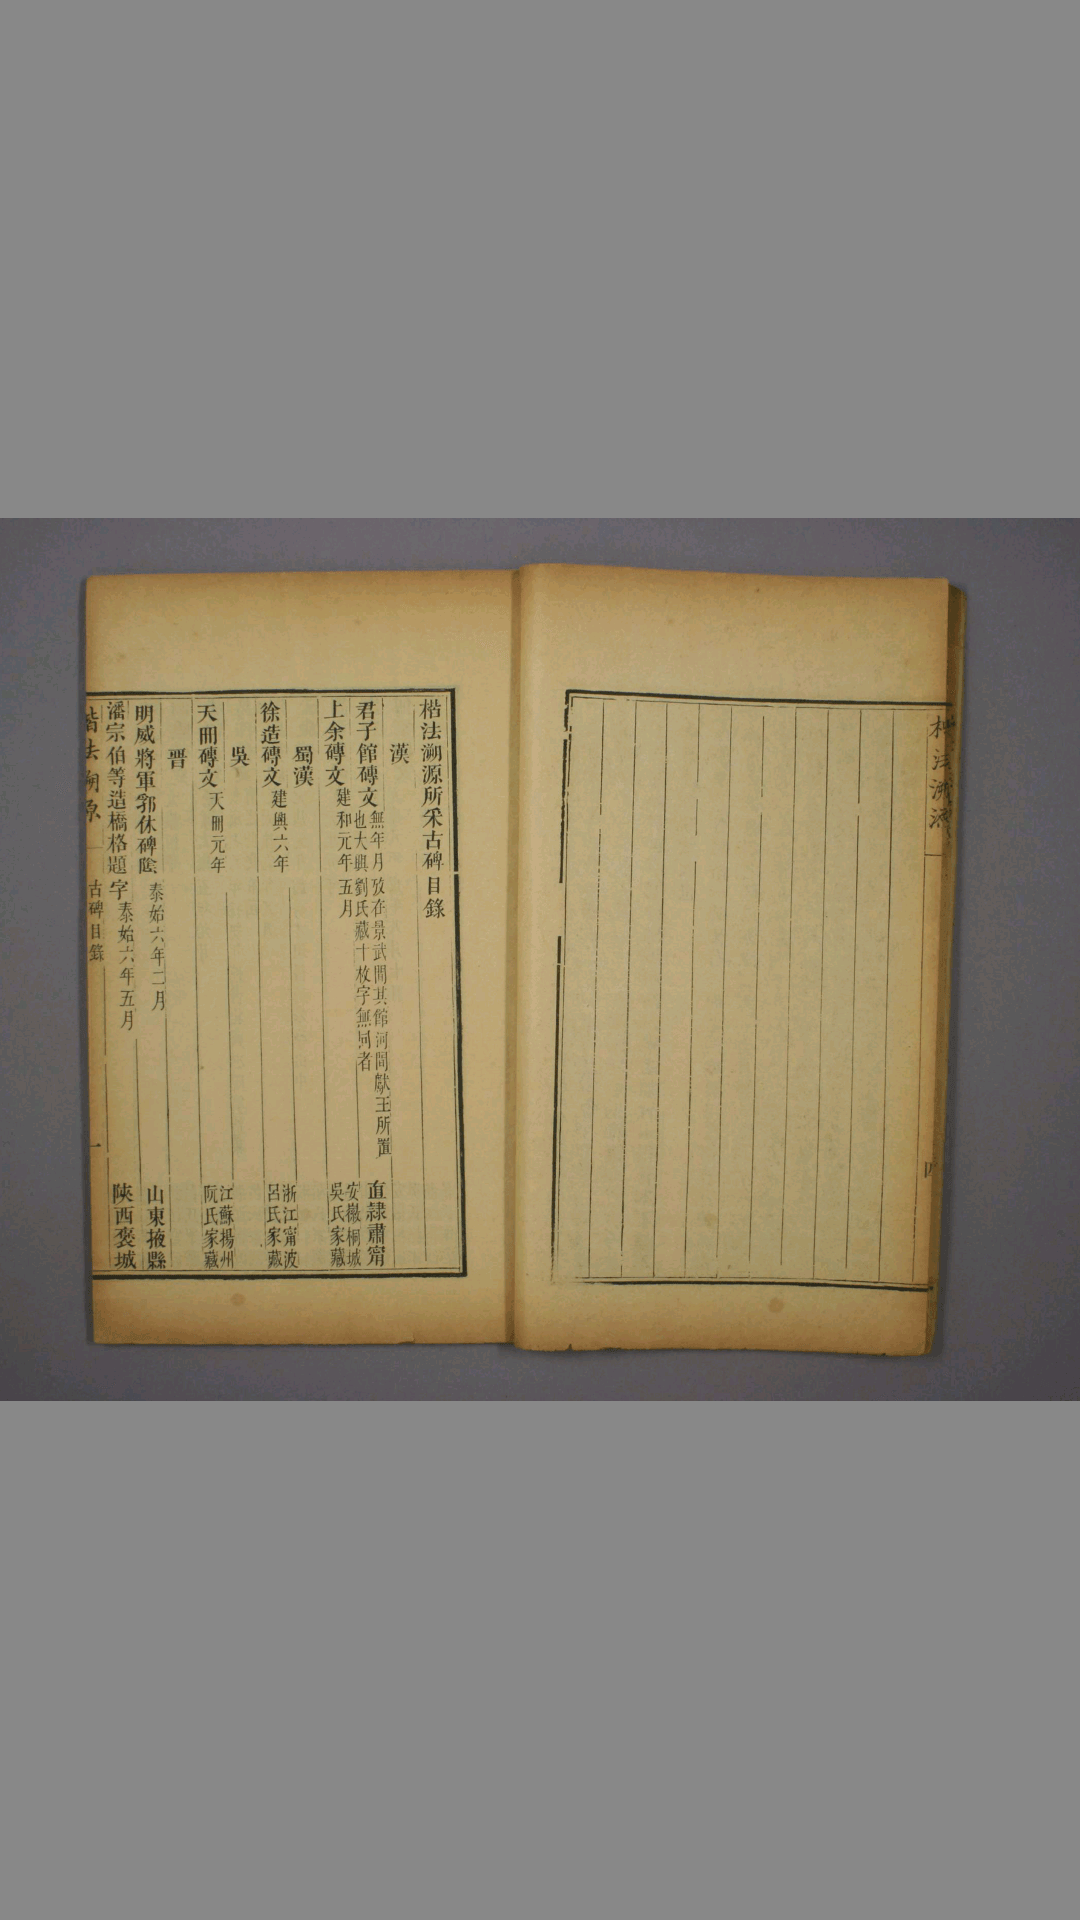 楷法溯源
楷法溯源所采古碑目錄
漢
君子館磚文 無年月攷在景武間其館河間獻王所置 直隸肅甯
也大興劉氏藏十枚字無同者
上余磚文 建和元年五月 安徽桐城
吳氏家藏
蜀漢
徐造磚文 建興六年 浙江甯波
呂氏家藏
吳
天冊磚文 天冊元年 江蘇揚州
阮氏家藏
晋
明威將軍郛休碑陰 泰始六年二月 山東掖縣
潘宗伯等造橋格題字 泰始六年五月 陝西褒城
楷法溯原 古碑目錄 一